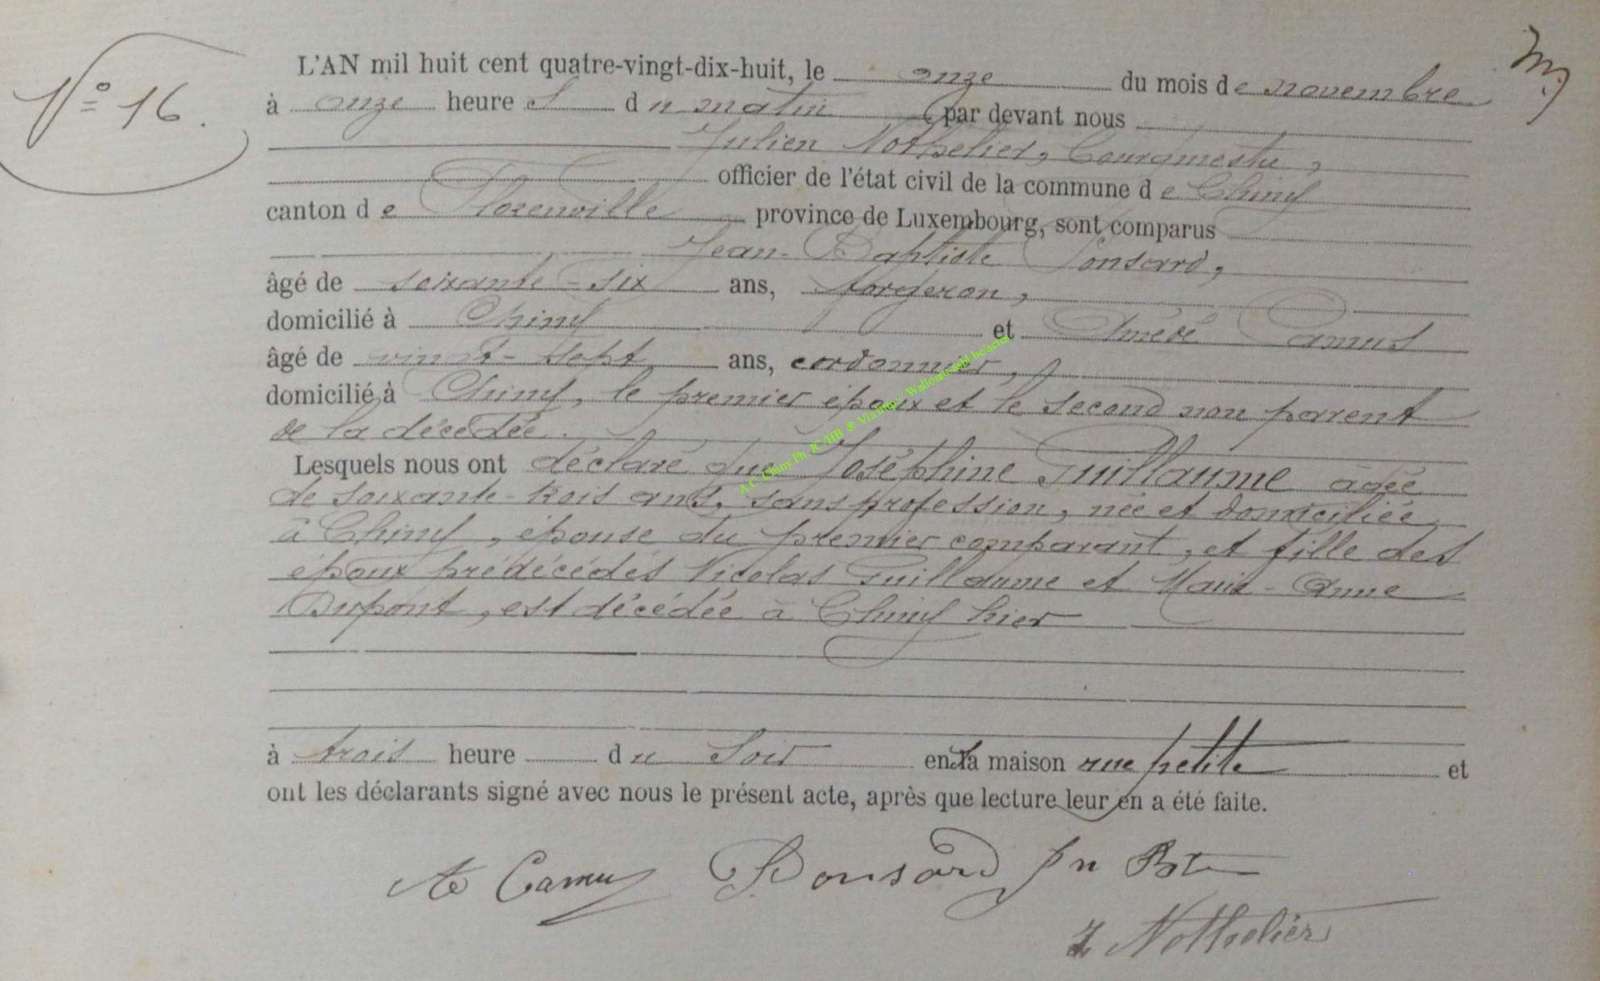 Nº 16.
L'AN mil huit cent quatre-vingt-dix-huit, le onze du mois de novembre
à onze heure s du matin par devant nous
Julien Nothelier, Bourgmestre,
officier de l'état civil de la commune de Chiny
canton de Florenville province de Luxembourg, sont comparus
Jean-Baptiste Ponsard,
âgé de soixante-six ans, forgeron,
domicilié à Chiny et Aimée Camus
âgé de vingt-sept ans, cordonnier,
domicilié à Chiny, le premier époux et le second non parent
de la décédée.
Lesquels nous ont déclaré que Joséphine Guillaume âgée
de soixante-trois ans, sans profession, née et domiciliée
à Chiny, épouse du premier comparant, et fille des
époux prédécédés Nicolas Guillaume et Marie-Anne
Dupont, est décédée à Chiny hier
à trois heure du soir en sa maison rue petite et
ont les déclarants signé avec nous le présent acte, après que lecture leur en a été faite.
Camus Ponsard Jn Bte
J. Nothelier